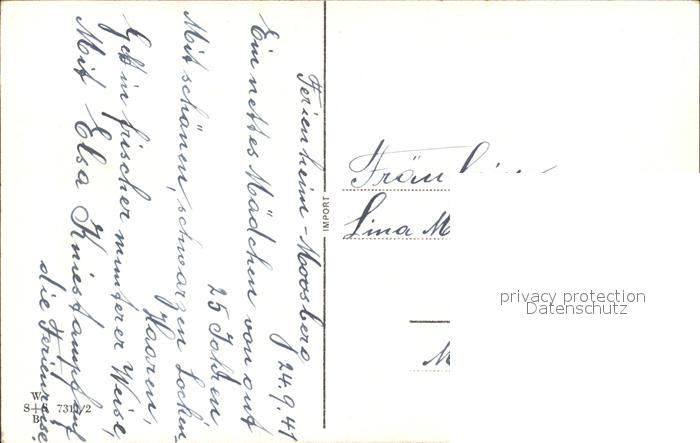 Ferienheim-Moosberg
24.9.41
Ein nettes Mädchen von
25 Jahren
Mit schönen, schwarzen Locken-
Haaren,
Geht in frischer munterer Weise,
Mit Elsa
die Ferienreise.
IMPORT
Fräulein
Lina M
M
W
S+S 7311/2
B
privacy protection
Datenschutz